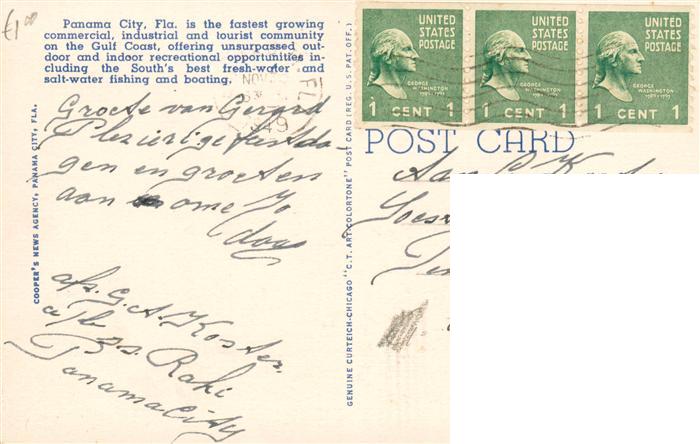 £1⁰⁰
Panama City, Fla. is the fastest growing
commercial, industrial and tourist community
on the Gulf Coast, offering unsurpassed out-
door and indoor recreational opportunities in-
cluding the South's best fresh-water and
salt-water fishing and boating.
Groete van Gerard
Plezierige feestda
gen en groeten
aan ome Jo
daag
afs. G. A. Koster
a/b
s.s. Raki
Panama City
COOPER'S NEWS AGENCY, PANAMA CITY, FLA.
GENUINE CURTEICH-CHICAGO "C.T. ART-COLORTONE" POST CARD (REG. U.S. PAT. OFF.)
NOV
1949
FL
UNITED
STATES
POSTAGE
GEORGE
WASHINGTON
1789-1797
1 CENT 1
UNITED
STATES
POSTAGE
GEORGE
WASHINGTON
1789-1797
1 CENT 1
UNITED
STATES
POSTAGE
GEORGE
WASHINGTON
1789-1797
1 CENT 1
POST CARD
Aan